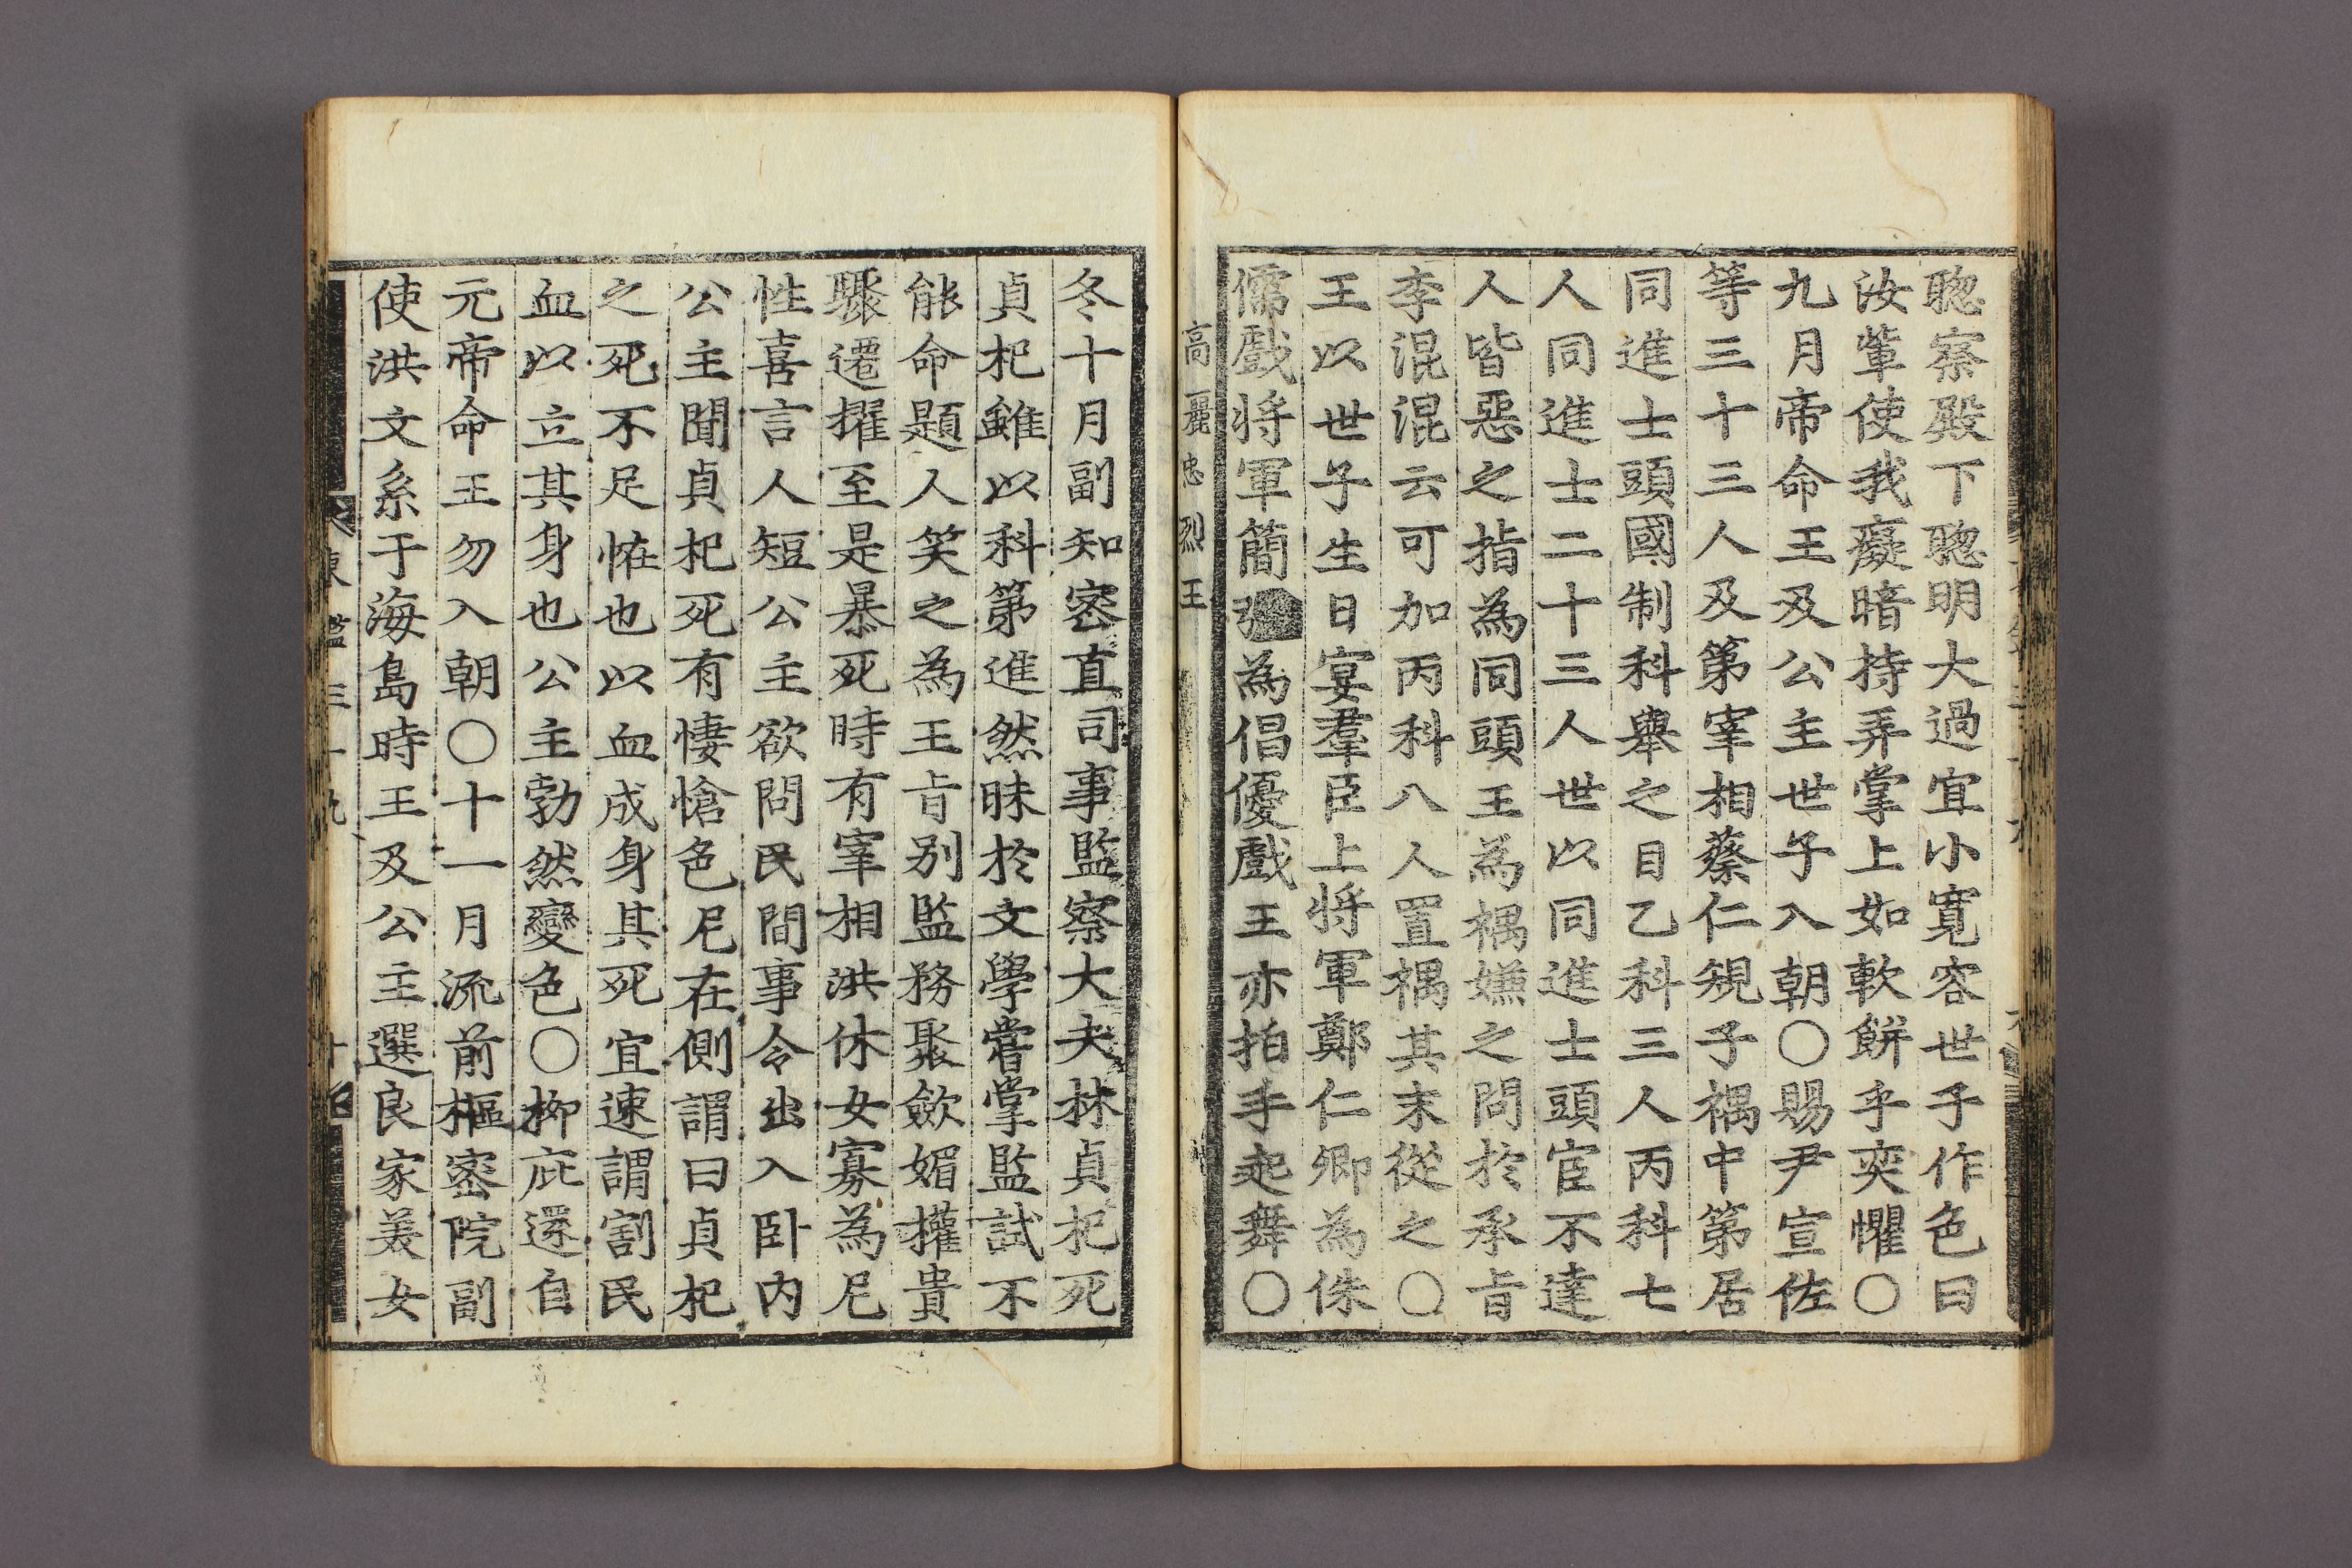 聦察殿下聦明大過宜小寛容世子作色曰
汝軰使我癡暗持弄掌上如軟餅乎奕懼〇
九月帝命王及公主世子入朝〇賜尹宣佐
等三十三人及第宰相蔡仁䂓子禑中第居
同進士頭國制科舉之目乙科三人丙科七
人同進士二十三人世以同進士頭宦不達
人皆惡之指為同頭王為禑嫌之問於承㫖
李混混云可加丙科八人置禑其末從之〇
王以世子生日宴羣臣上將軍鄭仁卿為侏
儒戯將軍簡為倡優戯王亦拍手起舞〇
高麗忠烈王
冬十月副知密直司事監察大夫林貞杞死
貞杞雖以科第進然昧於文學嘗掌監試不
能命題人笑之為王㫖别監務聚歛媚權貴
驟遷擢至是暴死時有宰相洪休女寡為尼
性喜言人短公主欲問民間事令出入卧内
公主聞貞杞死有悽愴色尼在側謂曰貞杞
之死不足恠也以血成身其死宜速謂割民
血以立其身也公主勃然變色〇柳庇還自
元帝命王勿入朝〇十一月流前樞密院副
使洪文系于海島時王及公主選良家美女